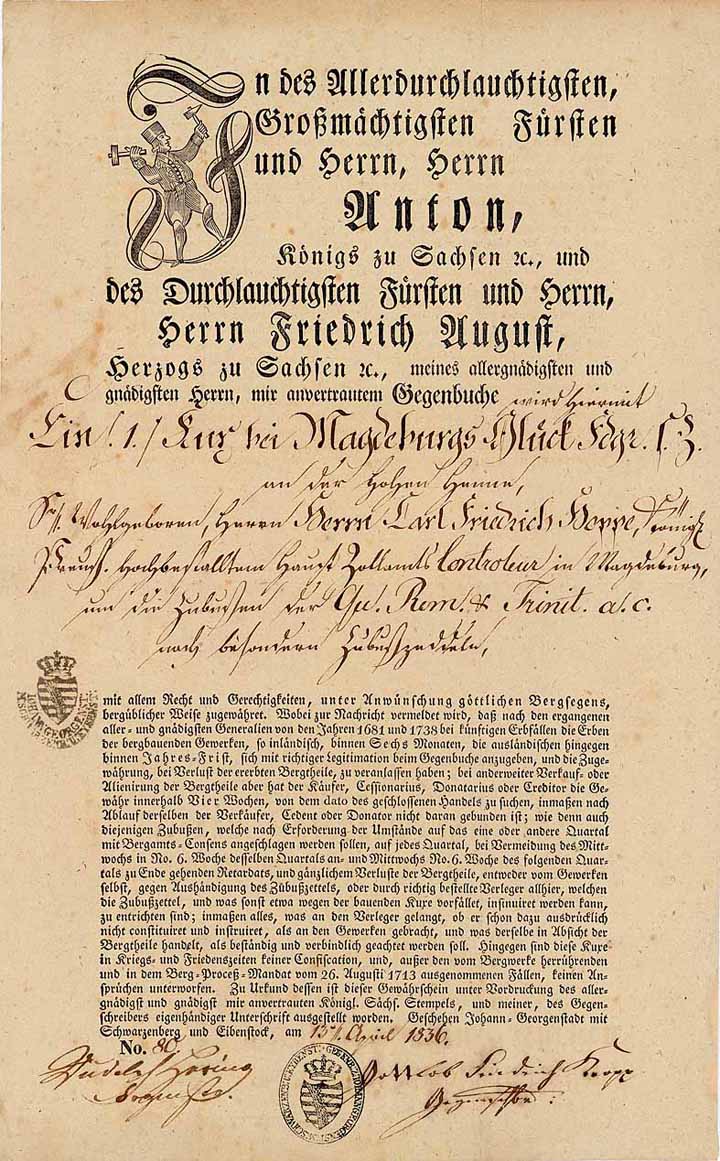 In des Allerdurchlauchtigsten,
Großmächtigsten Fürsten
und Herrn, Herrn
Anton,
Königs zu Sachsen ꝛc., und
des Durchlauchtigsten Fürsten und Herrn,
Herrn Friedrich August,
Herzogs zu Sachsen ꝛc., meines allergnädigsten und
gnädigsten Herrn, mir anvertrautem Gegenbuche wird hiermit
Ein /. 1. / Kux bei Magdeburgs Glück Fdgr. s. Z.
an der hohen Henne,
Sr. Wohlgeboren, Herrn Herrn Carl Friedrich Hoppe, Königl.
Preuß. hochbestalltem Haupt Zollamts Controleur in Magdeburg,
um die Zubußen der Qu. Rem. & Trinit. a. c.
nach besondern Zubußzeddeln,
mit allem Recht und Gerechtigkeiten, unter Anwünschung göttlichen Bergsegens,
bergüblicher Weise zugewähret. Wobei zur Nachricht vermeldet wird, daß nach den ergangenen
aller- und gnädigsten Generalien von den Jahren 1681 und 1738 bei künftigen Erbfällen die Erben
der bergbauenden Gewerken, so inländisch, binnen Sechs Monaten, die ausländischen hingegen
binnen Jahres-Frist, sich mit richtiger Legitimation beim Gegenbuche anzugeben, und die Zuge-
währung, bei Verlust der ererbten Bergtheile, zu veranlassen haben; bei anderweiter Verkauf- oder
Alienirung der Bergtheile aber hat der Käufer, Cessionarius, Donatarius oder Creditor die Ge-
währ innerhalb Vier Wochen, von dem dato des geschlossenen Handels zu suchen, inmaßen nach
Ablauf derselben der Verkäufer, Cedent oder Donator nicht daran gebunden ist; wie denn auch
diejenigen Zubußen, welche nach Erforderung der Umstände auf das eine oder andere Quartal
mit Bergamts-Consens angeschlagen werden sollen, auf jedes Quartal, bei Vermeidung des Mitt-
wochs in No. 6. Woche desselben Quartals an- und Mittwochs No. 6. Woche des folgenden Quar-
tals zu Ende gehenden Retardats, und gänzlichem Verluste der Bergtheile, entweder vom Gewerken
selbst, gegen Aushändigung des Zubußzettels, oder durch richtig bestellte Verleger allhier, welchen
die Zubußzettel, und was sonst etwa wegen der bauenden Kuxe vorfället, insinuiret werden kann,
zu entrichten sind; inmaßen alles, was an den Verleger gelangt, ob er schon dazu ausdrücklich
nicht constituiret und instruiret, als an den Gewerken gebracht, und was derselbe in Absicht der
Bergtheile handelt, als beständig und verbindlich geachtet werden soll. Hingegen sind diese Kuxe
in Kriegs- und Friedenszeiten keiner Confiscation, und, außer den vom Bergwerke herrührenden
und in dem Berg-Proceß-Mandat vom 26. Augusti 1713 ausgenommenen Fällen, keinen An-
sprüchen unterworfen. Zu Urkund dessen ist dieser Gewährschein unter Vordruckung des aller-
gnädigst und gnädigst mir anvertrauten Königl. Sächs. Stempels, und meiner, des Gegen-
schreibers eigenhändiger Unterschrift ausgestellt worden. Geschehen Johann-Georgenstadt mit
Schwarzenberg und Eibenstock, am 13t. April 1836.
No. 80.
Gottlob Friedrich
Gegenschbr.